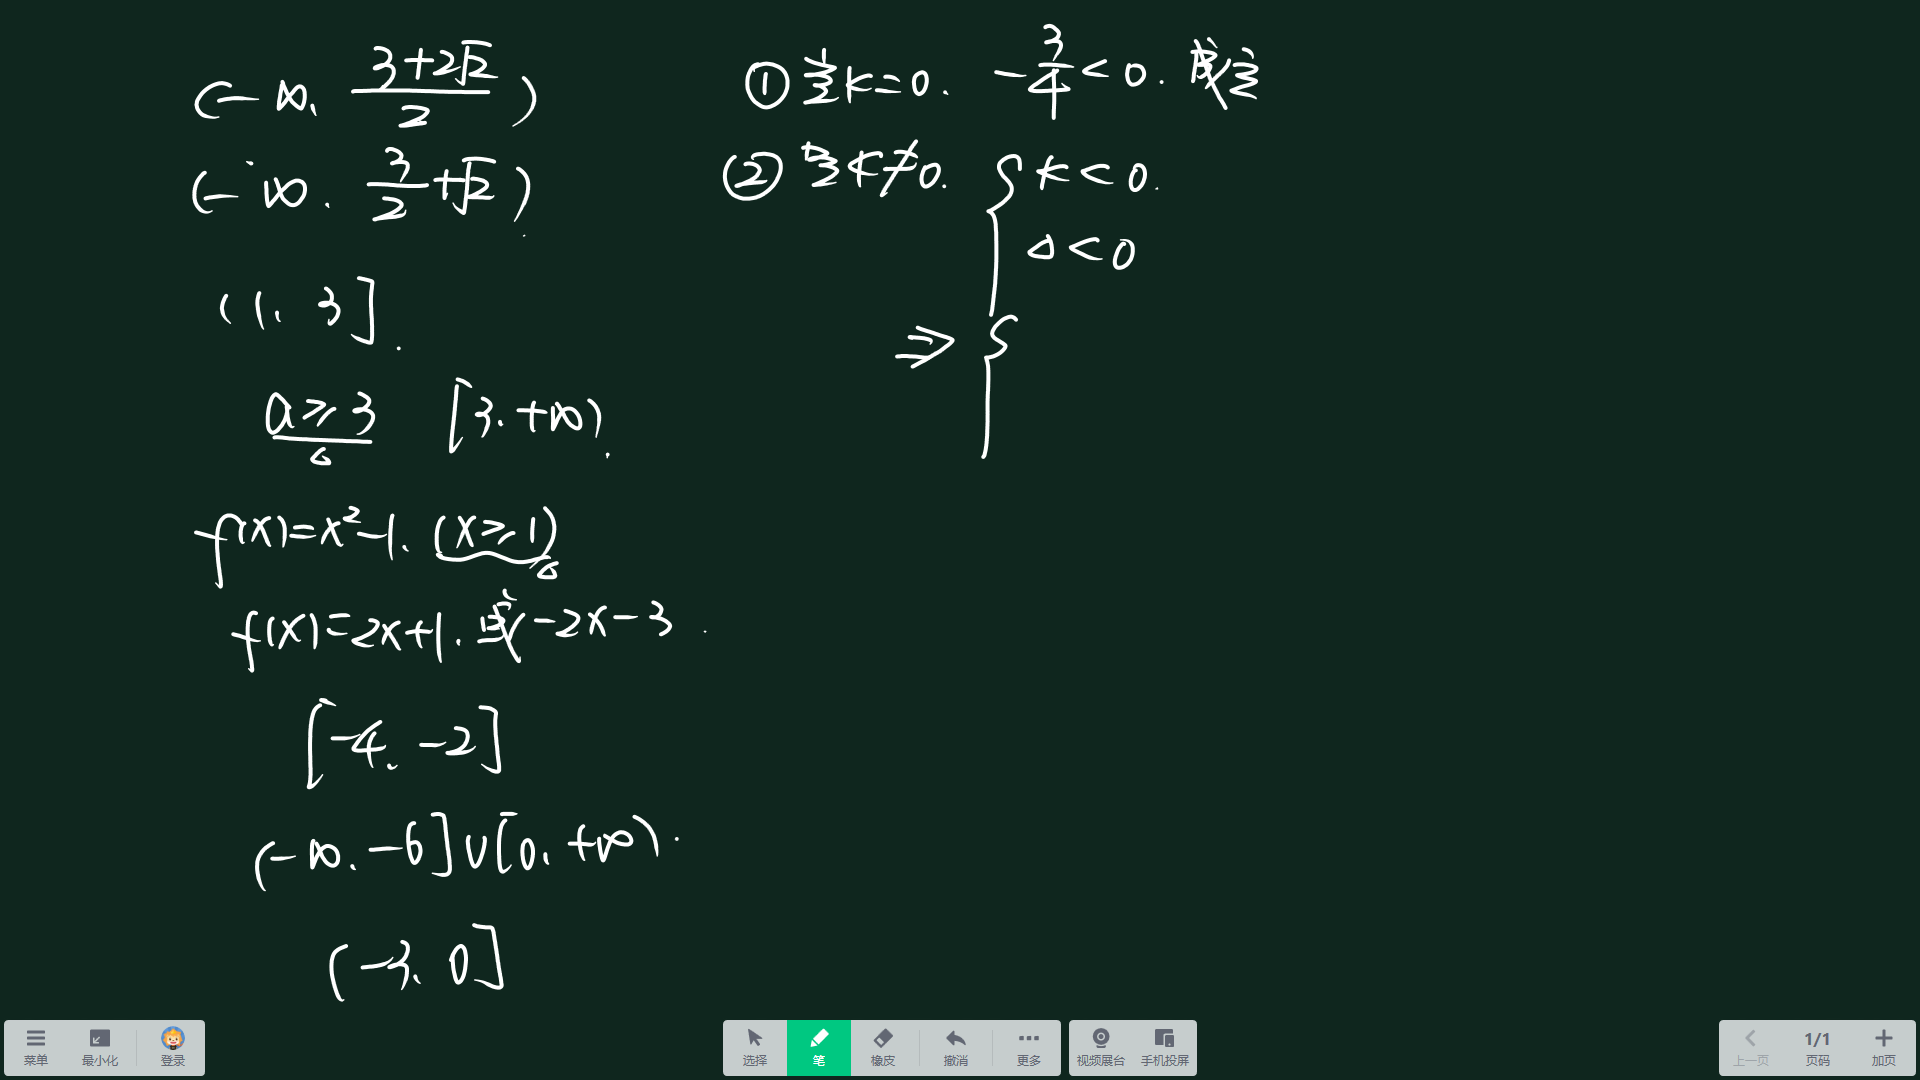 (-∞, (3+2√2)/2)
(-∞, 3/2+√2)
(1, 3].
a≥3 [3, +∞).
f(x)=x²-1, (x≥1)
f(x)=2x+1, 或-2x-3.
[-4, -2]
(-∞, -6]∪[0, +∞).
(-3, 0]
① 当k=0. -3/4<0. 成立
② 当k≠0. { k<0.
Δ<0
⇒ {
菜单 最小化 登录 选择 笔 橡皮 撤消 更多 视频展台 手机投屏 上一页 1/1 页码 加页